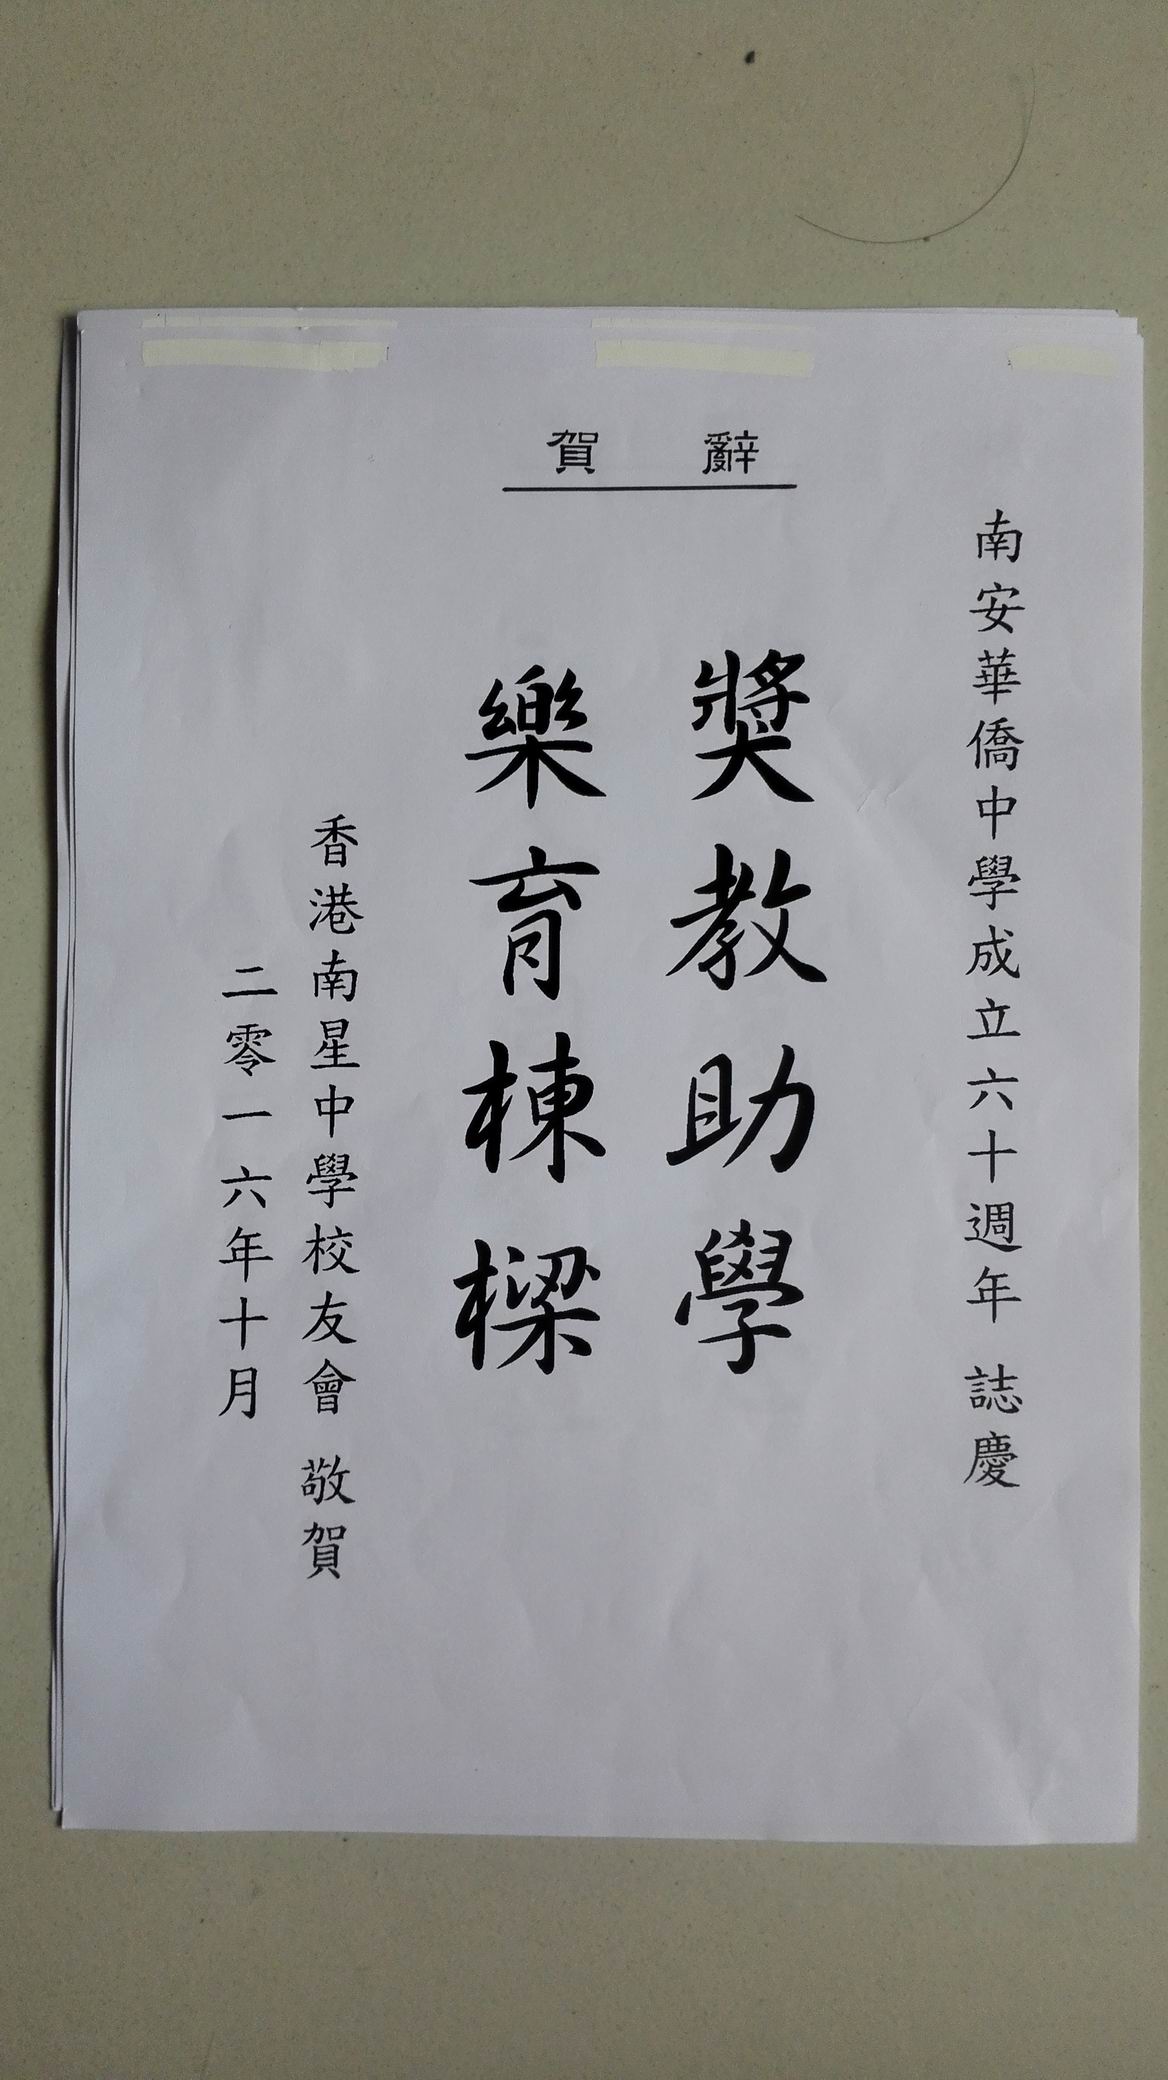 賀 辭
南安華僑中學成立六十週年 誌慶
獎教助學
樂育棟樑
香港南星中學校友會 敬賀
二零一六年十月